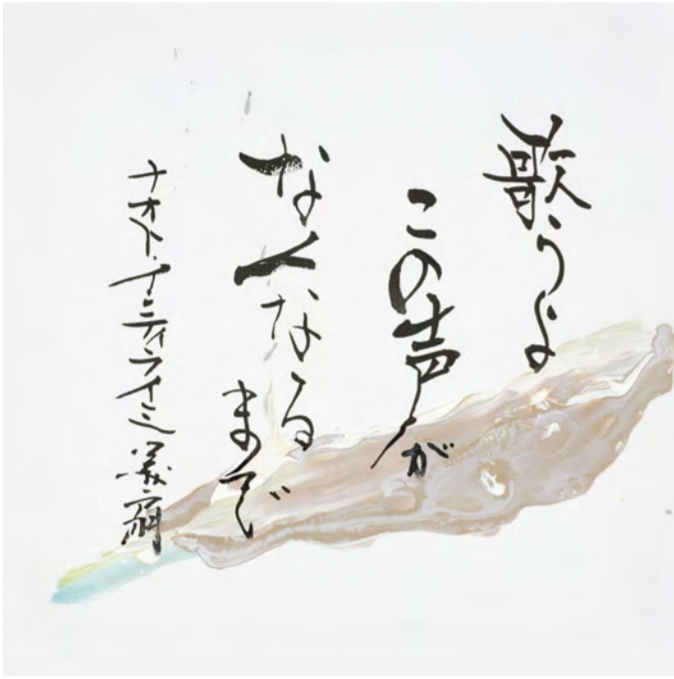 歌うよ
この声が
なくなる
まで
ナオト・インティライミ